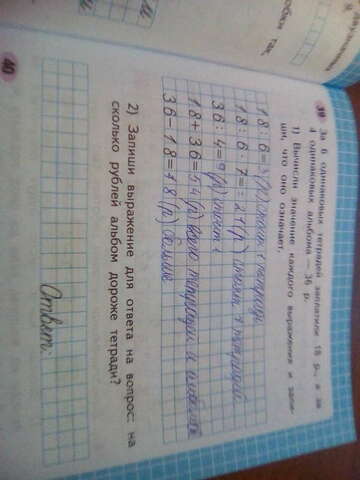 39 За 6 одинаковых тетрадей заплатили 18 р., а за
4 одинаковых альбома — 36 р.
1) Вычисли значение каждого выражения и запи-
ши, что оно означает.
18 : 6 = 3 (р) 1 тетрадь
18 : 6 · 7 = 21 (р)
36 : 4 = 9 (р)
18 + 36 = 54 (р) всего тетради и альбомы
36 - 18 = 18 (р) больше
2) Запиши выражение для ответа на вопрос: на
сколько рублей альбом дороже тетради?
Ответ:
40